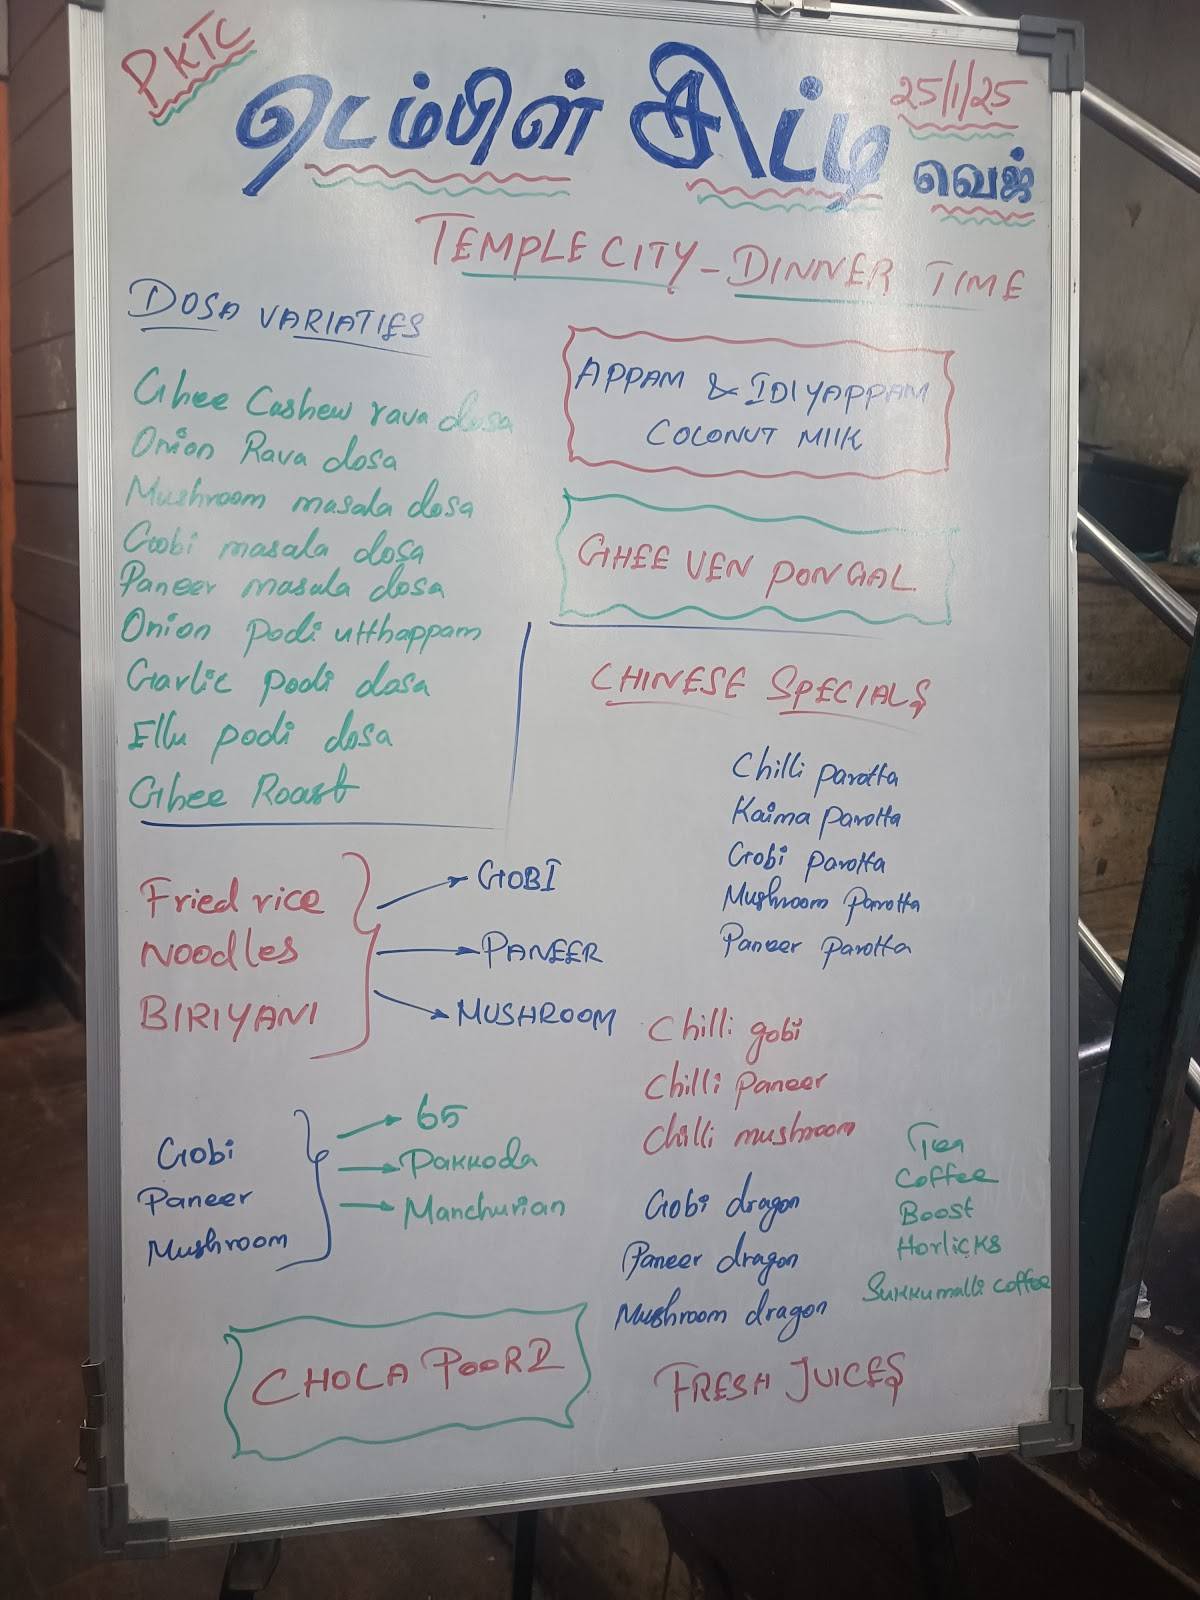 PKTC
டெம்பிள் சிட்டி
25/1/25
வெஜ்
TEMPLE CITY - DINNER TIME
DOSA VARIATIES
Ghee Cashew rava dosa
Onion Rava dosa
Mushroom masala dosa
Gobi masala dosa
Paneer masala dosa
Onion podi utthappam
Garlic podi dosa
Ellu podi dosa
Ghee Roast
APPAM & IDIYAPPAM
COLONUT MIlK
GHEE VEN PONGAL
CHINESE SPECIALS
Chilli parotta
Kaima parotta
Gobi parotta
Mushroom Parotta
Paneer parotta
Fried rice
NOODLES
BIRIYANI
GOBI
PANEER
MUSHROOM
Gobi
Paneer
Mushroom
65
Pakkoda
Manchurian
Chilli gobi
Chilli Paneer
Chilli mushroom
Gobi dragon
Paneer dragon
Mushroom dragon
Tea
Coffee
Boost
Horlicks
Sukkumalli coffee
CHOLA POORI
FRESH JUICES